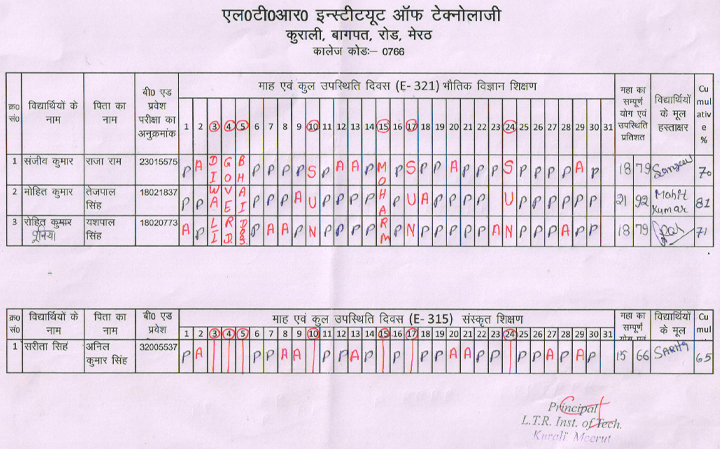 एल0टी0आर0 इन्स्टीटयूट ऑफ टेक्नोलाजी
कुराली, बागपत, रोड, मेरठ
कालेज कोडः– 0766
क्र0 सं0 विद्यार्थियों के नाम पिता का नाम बी0 एड प्रवेश परीक्षा का अनुक्रमांक माह एवं कुल उपस्थिति दिवस (E- 321) भौतिक विज्ञान शिक्षण महा का सम्पूर्ण योग एवं उपस्थिति प्रतिशत विद्यार्थियों के मूल हस्ताक्षर Cu mul ativ e %
1 2 3 4 5 6 7 8 9 10 11 12 13 14 15 16 17 18 19 20 21 22 23 24 25 26 27 28 29 30 31
1 संजीव कुमार राजा राम 23015575 P A D I G O B H P P P P S P A A P M O P S P P A P P S P P P P A P 18 79 70
2 मोहित कुमार तेजपाल सिंह 18021837 P P W A V E A I P P P A U P P P P H A P U A P P P P U P P P P P P 21 92 Mohit Kumar 81
3 रोहित कुमार पुनिया यशपाल सिंह 18020773 A P L I R D P A A P N P P P P R M P N P P P P A N P P P A P P 18 79 71
क्र0 सं0 विद्यार्थियों के नाम पिता का नाम बी0 एड प्रवेश माह एवं कुल उपस्थिति दिवस (E- 315) संस्कृत शिक्षण महा का सम्पूर्ण विद्यार्थियों के मूल Cu mul
1 2 3 4 5 6 7 8 9 10 11 12 13 14 15 16 17 18 19 20 21 22 23 24 25 26 27 28 29 30 31
1 सरीता सिंह अनिल कुमार सिंह 32005537 P A P P A A P P A P P P P A A P P P P A P A P 15 66 65
Principal
L.T.R. Inst. of Tech.
Kurali Meerut